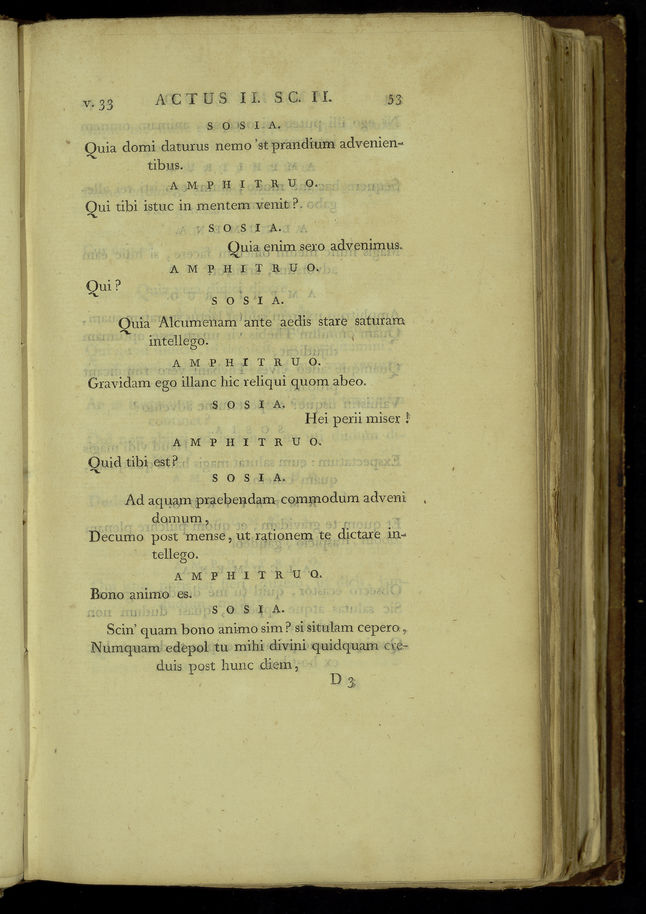 v. 33 ACTUS II. SC. II. 53
SOSIA.
Quia domi daturus nemo 'st prandium advenien-
tibus.
AMPHITRUO.
Qui tibi istuc in mentem venit?
SOSIA.
Quia enim sero advenimus.
AMPHITRUO.
Qui?
SOSIA.
Quia Alcumenam ante aedis stare saturam
intellego.
AMPHITRUO.
Gravidam ego illanc hic reliqui quom abeo.
SOSIA.
Hei perii miser!
AMPHITRUO.
Quid tibi est?
SOSIA.
Ad aquam praebendam commodum adveni
domum,
Decumo post mense, ut rationem te dictare in-
tellego.
AMPHITRUO.
Bono animo es.
SOSIA.
Scin' quam bono animo sim? si situlam cepero,
Numquam edepol tu mihi divini quidquam cre-
duis post hunc diem,
D 3